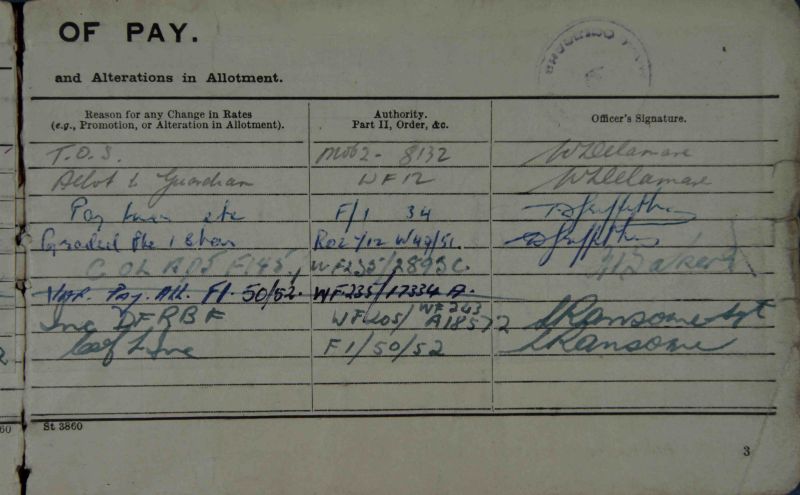 OF PAY.
and Alterations in Allotment.
Reason for any Change in Rates
(e.g., Promotion, or Alteration in Allotment).
Authority.
Part II, Order, &c.
Officer's Signature.
T.O.S. Mob2- 8132 WLDelamare
Allot to Guardian WF12 WLDelamare
Pay F/1 34
Graded Pte 1 Star
COL ADJ F145 WF235/2893C
Var. Pay. All. F1. 50/52. WF235/17334 A.
Inc DFRBF WF205/ WF243 A18572 Ransome Sgt
F1/50/52 Ransome
60 St 3860
3